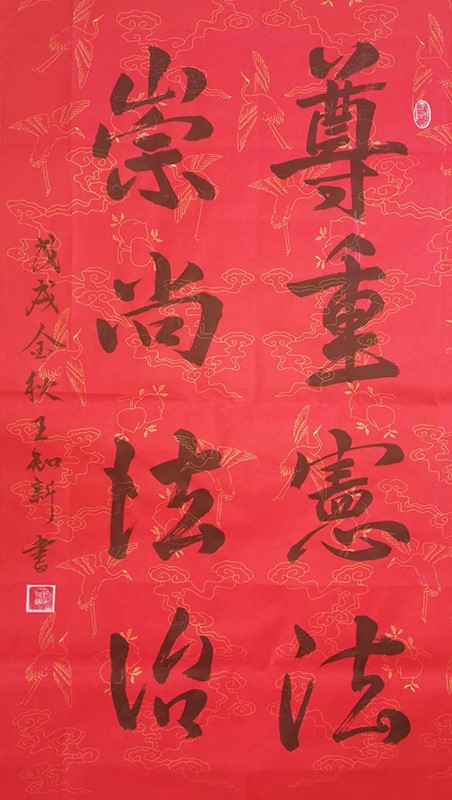 尊重憲法
崇尚法治
戊戌金秋王知新書